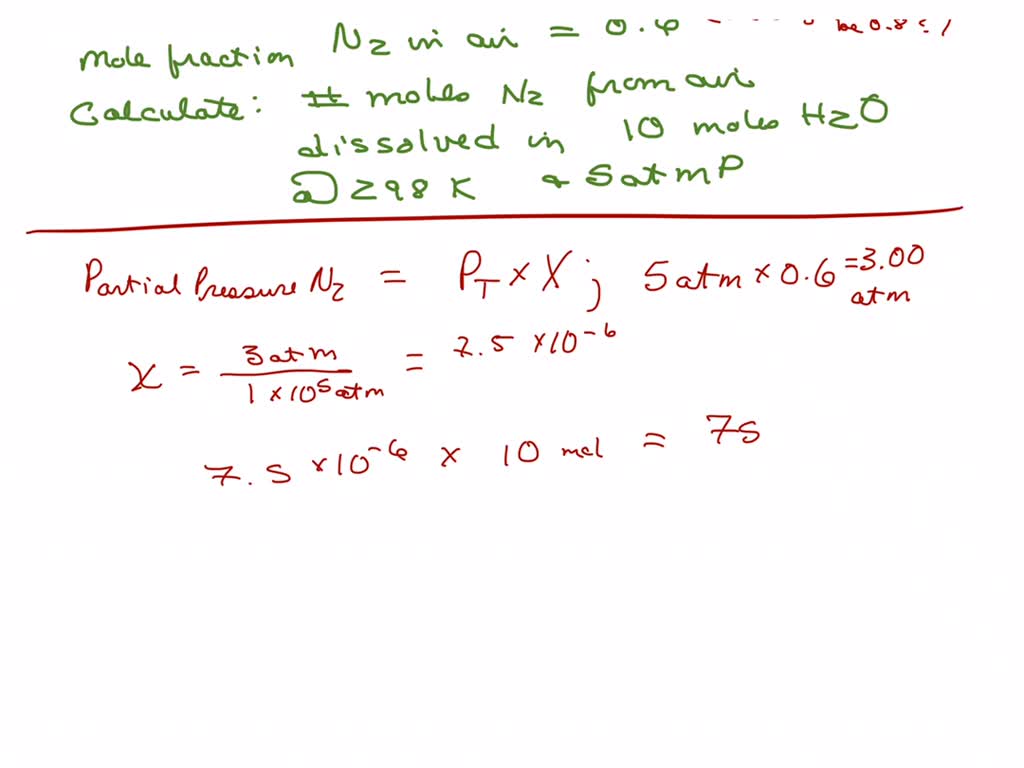 mole fraction N2 in air = 0.6 be 0.8 ? )
Calculate: # moles N2 from air
dissolved in 10 moles H2O
@ 298 K & 5 atm P
Partial Pressure N2 = PT × X ; 5 atm × 0.6 = 3.00 atm
X = 3 atm / 1 × 10^5 atm = 7.5 × 10^-6
7.5 × 10^-6 × 10 mol = 75